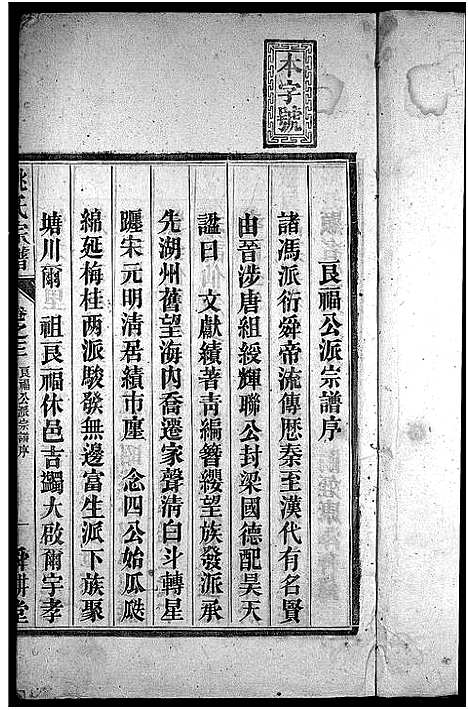 本字號
良福公派宗譜序
諸馮派衍舜帝流傳歷秦至漢代有名賢
由晉涉唐組綬輝聯公封梁國德配昊天
謚曰 文獻績著靑編簪纓望族發派承
先湖州舊望海內喬遷家聲清白斗轉星
躔宋元明清居績市廛 念四公始瓜瓞
綿延梅桂两派駿發無邊富生派下族聚
塘川爾 祖良福休邑吉蠲大啟爾宇孝
氏宗譜
卷之三
良福公派宗譜序
一
舜耕堂